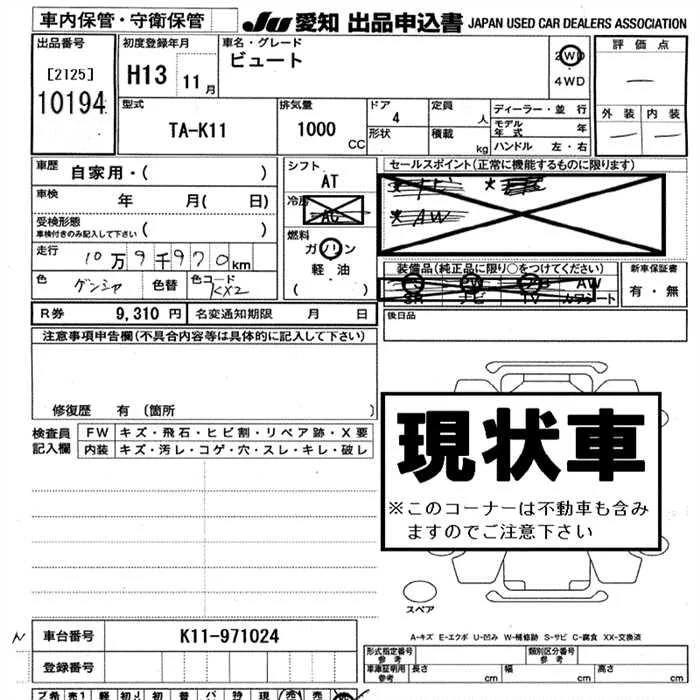 車内保管・守衛保管
JU 愛知 出品申込書 JAPAN USED CAR DEALERS ASSOCIATION
出品番号
[2125]
10194
初度登録年月
H13 11月
車名・グレード
ビュート
2WD
4WD
評価点
—
外装 内装
— —
型式
TA-K11
排気量
1000 CC
ドア
4
形状
定員
人
積載
kg
ディーラー・並行
モデル年式 年
ハンドル 左・右
車歴
自家用・( )
車検
年 月( 日)
受検形態
車検付きのみ記入して下さい ( )
走行
10万9千970km
色
ゲンシャ
色替
色コード
KX2
シフト
AT
冷房
AC
燃料
ガソリン
軽油
( )
セールスポイント(正常に機能するものに限ります)
ナビ
★AW
装備品(純正品に限り○をつけてください)
AW
SR ナビ TV カワシート
新車保証書
有・無
後日品
R券 9,310円 名変通知期限 月 日
注意事項申告欄(不具合内容等は具体的に記入して下さい)
修復歴 有 (箇所 )
検査員
記入欄
FW キズ・飛石・ヒビ割・リペア跡・X要
内装 キズ・汚レ・コゲ・穴・スレ・キレ・破レ
現状車
※このコーナーは不動車も含み
ますのでご注意下さい
スペア
A-キズ E-エクボ U-凹み W-補修跡 S-サビ C-腐食 XX-交換済
N
車台番号 K11-971024
登録番号
形式指定番号
参考
類別区分番号
参考
車庫証明用
参考
長さ cm 幅 cm 高さ cm